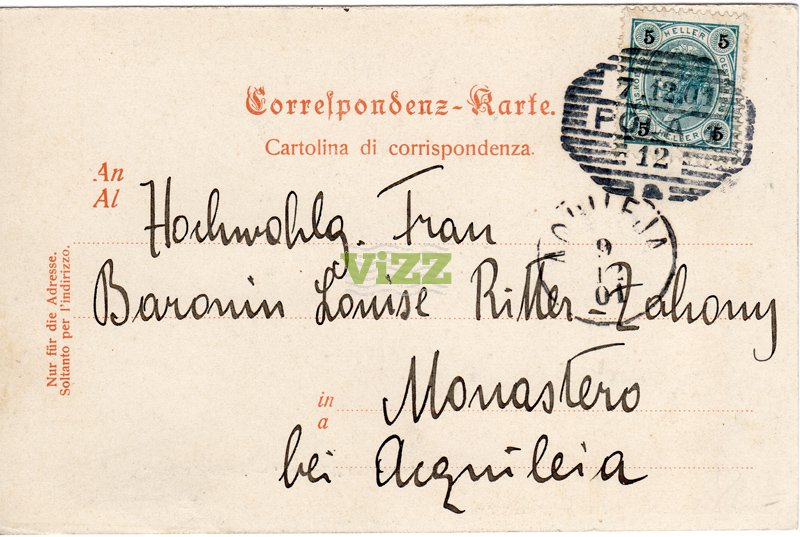 5 HELLER 5
5 HELLER 5
7.12.01
POLA
12
Correspondenz-Karte.
Cartolina di corrispondenza.
An
Al
Hochwohlg. Frau
AQUILEJA
9
12
01
ViZZ
Baronin Louise Ritter Zahony
Nur für die Adresse.
Soltanto per l'indirizzo.
in
a
Monastero
bei Acquileia